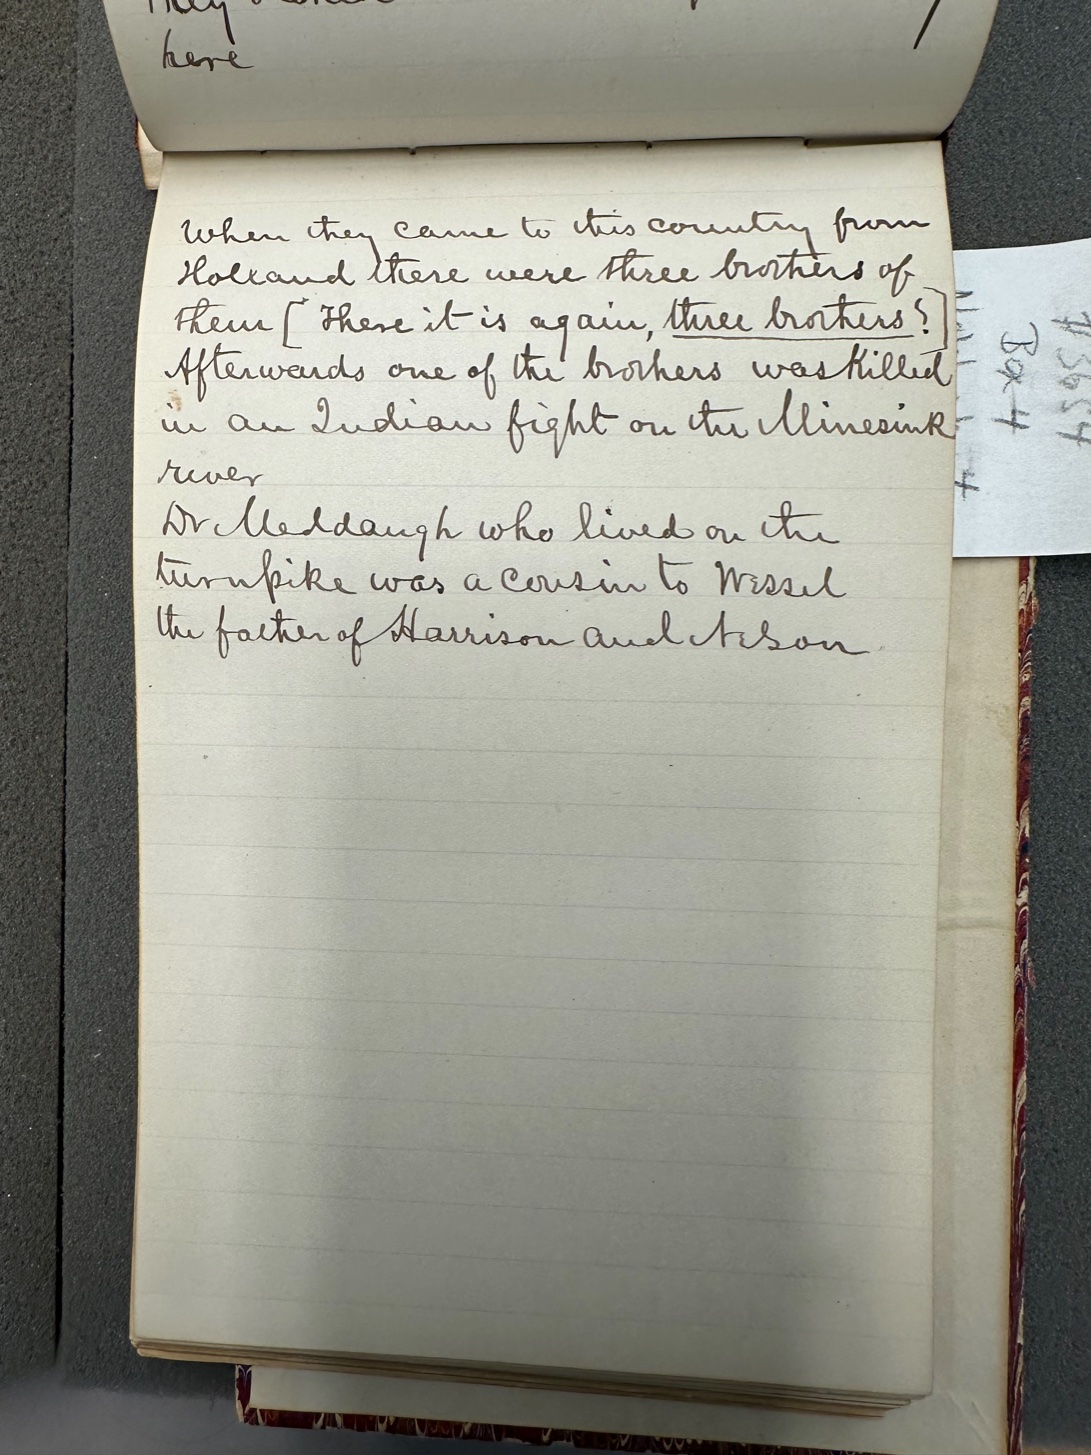 here
When they came to this country from
Holland there were three brothers of
them [There it is again, three brothers!]
Afterwards one of the brothers was killed
in an Indian fight on the Minesink
river
Dr Meddaugh who lived on the
turnpike was a cousin to Wessel
the father of Harrison and Nelson
Box 4